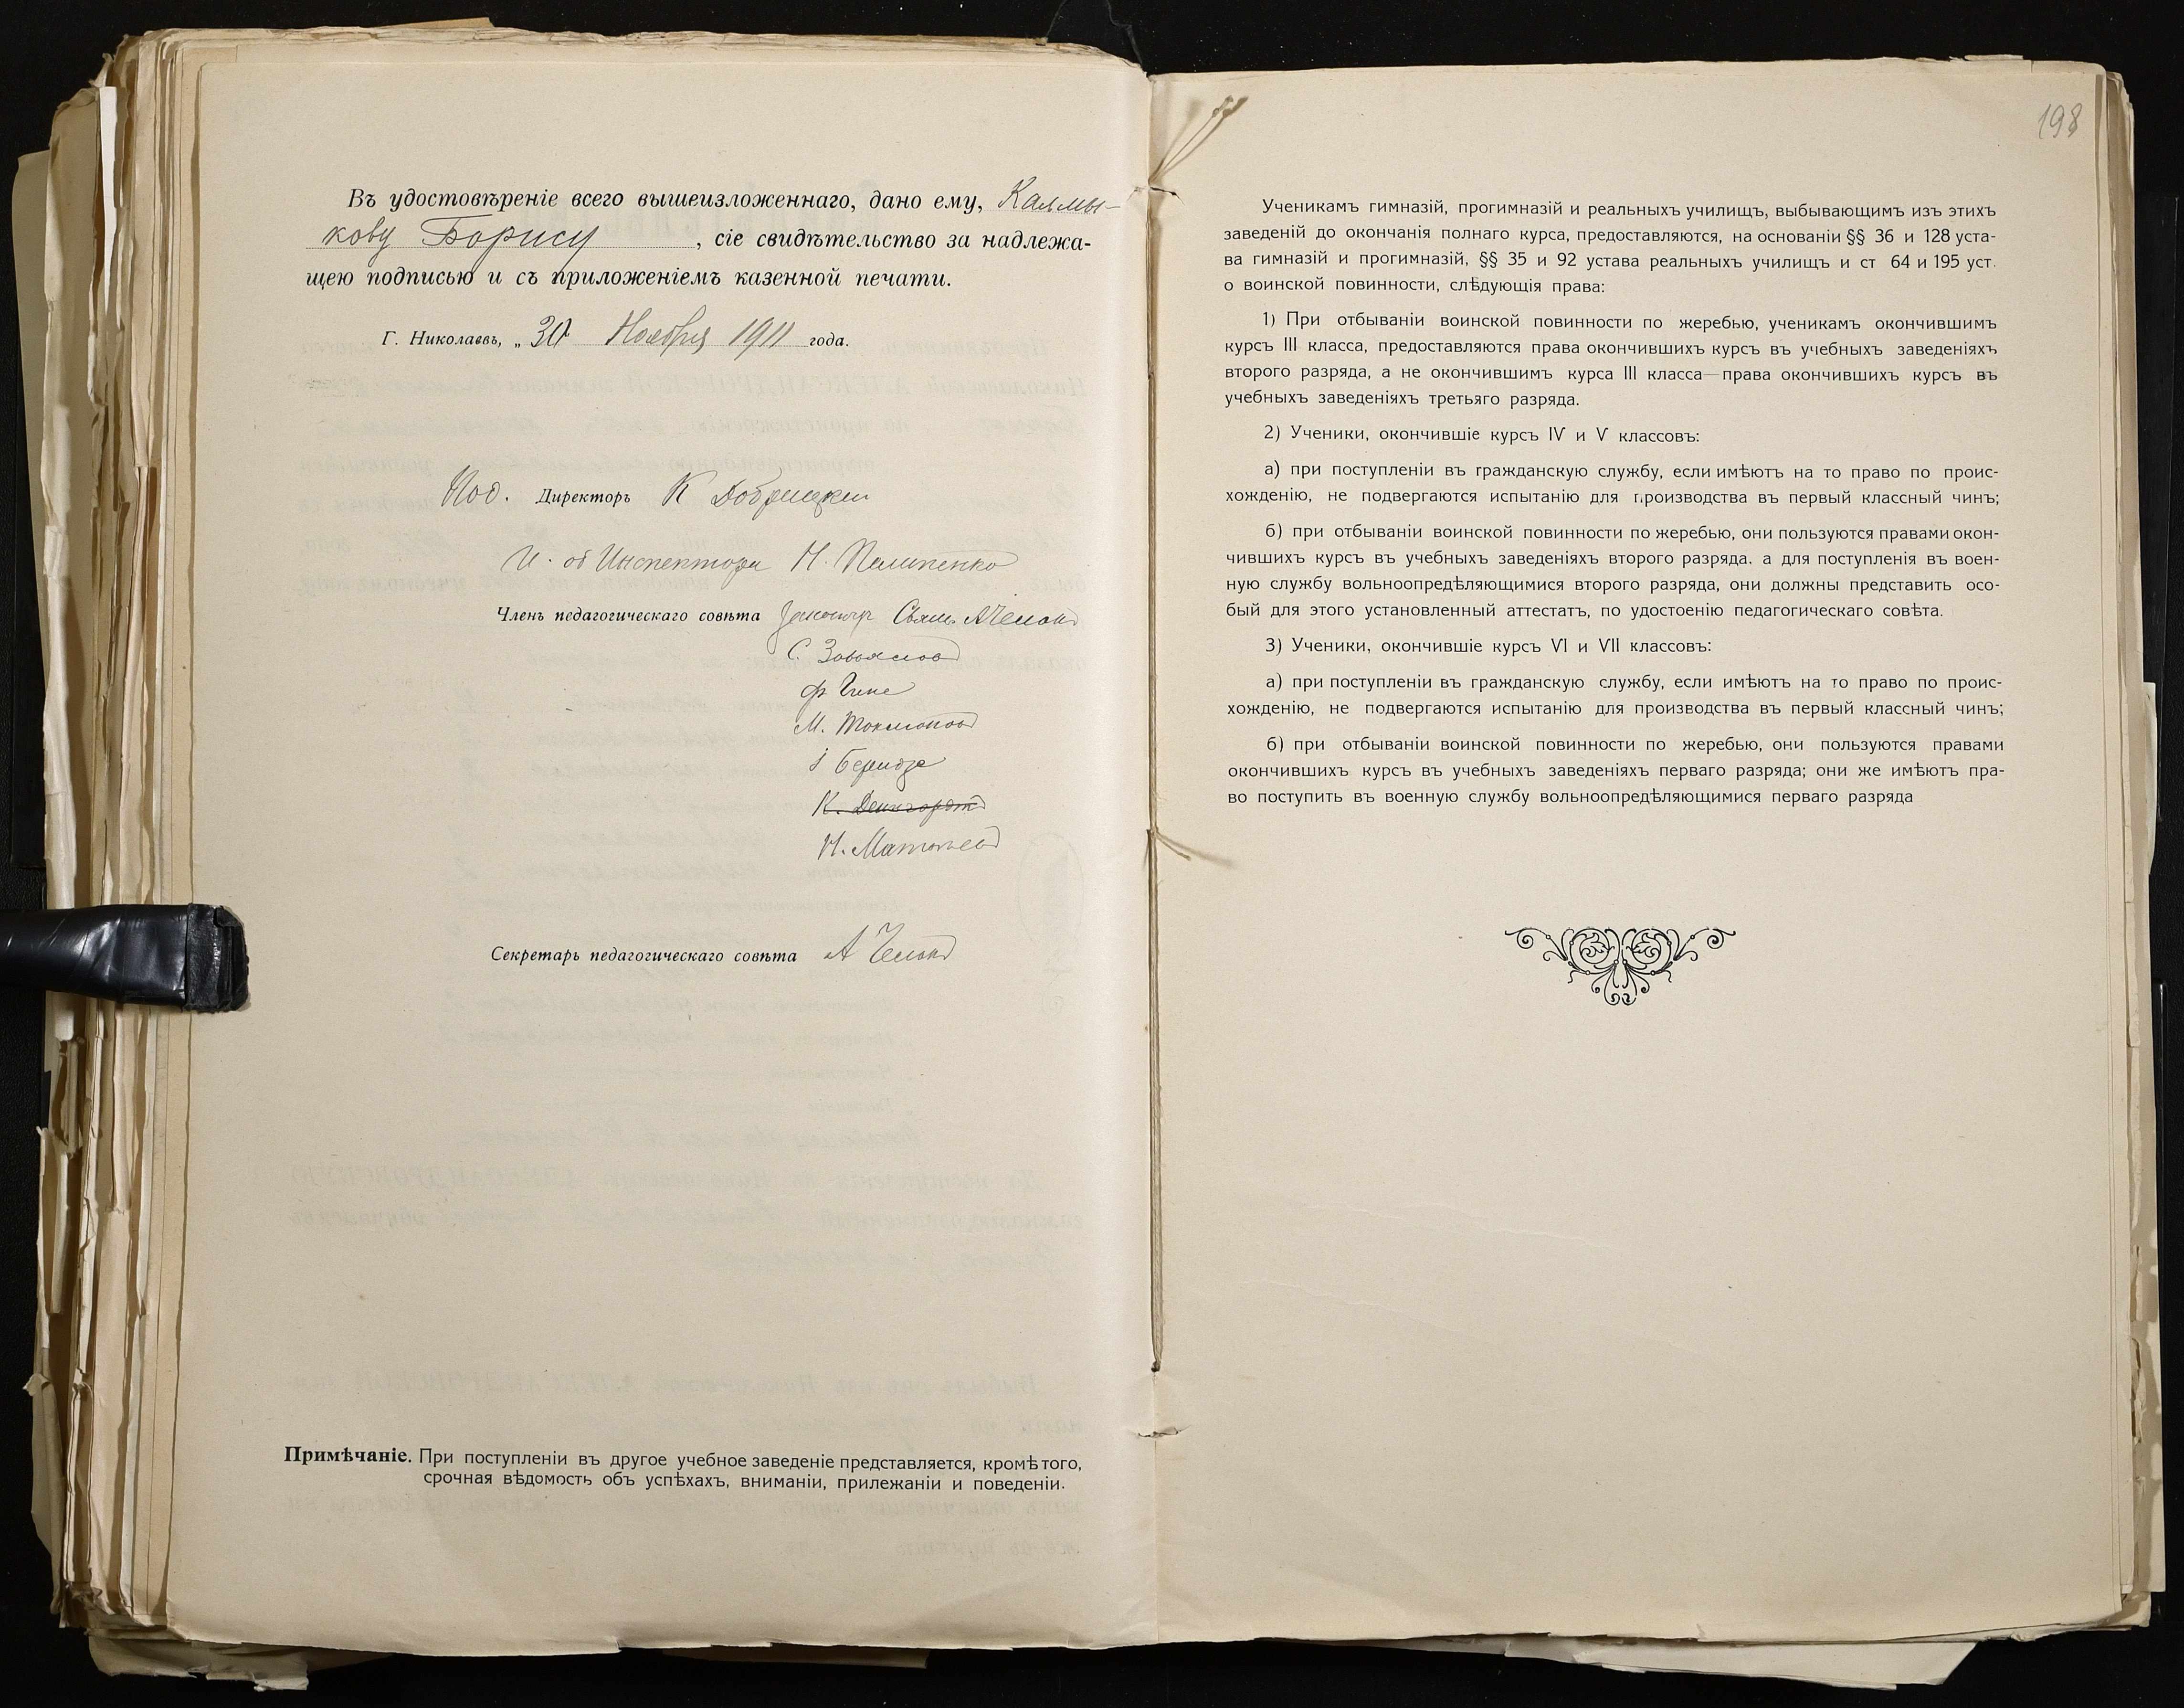 Въ удостовѣреніе всего вышеизложеннаго, дано ему, Калмы-
кову Борису, сіе свидѣтельство за надлежа-
щею подписью и съ приложеніемъ казенной печати.
Г. Николаевъ, „ 30 Ноября 1911 года.
Под. Директоръ К Добрицкій
И. об Инспектора Н. Пелипенко
Членъ педагогическаго совѣта
С. Завьялов
М. Токмаков
Н. Матвѣев
Секретарь педагогическаго совѣта А
Примѣчаніе. При поступленіи въ другое учебное заведеніе представляется, кромѣ того,
срочная вѣдомость объ успѣхахъ, вниманіи, прилежаніи и поведеніи.
198
Ученикамъ гимназій, прогимназій и реальныхъ училищъ, выбывающимъ изъ этихъ
заведеній до окончанія полнаго курса, предоставляются, на основаніи §§ 36 и 128 уста-
ва гимназій и прогимназій, §§ 35 и 92 устава реальныхъ училищъ и ст 64 и 195 уст.
о воинской повинности, слѣдующія права:
1) При отбываніи воинской повинности по жеребью, ученикамъ окончившимъ
курсъ III класса, предоставляются права окончившихъ курсъ въ учебныхъ заведеніяхъ
второго разряда, а не окончившимъ курса III класса—права окончившихъ курсъ въ
учебныхъ заведеніяхъ третьяго разряда.
2) Ученики, окончившіе курсъ IV и V классовъ:
а) при поступленіи въ гражданскую службу, если имѣютъ на то право по проис-
хожденію, не подвергаются испытанію для производства въ первый классный чинъ;
б) при отбываніи воинской повинности по жеребью, они пользуются правами окон-
чившихъ курсъ въ учебныхъ заведеніяхъ второго разряда. а для поступленія въ воен-
ную службу вольноопредѣляющимися второго разряда, они должны представить осо-
бый для этого установленный аттестатъ, по удостоенію педагогическаго совѣта.
3) Ученики, окончившіе курсъ VI и VII классовъ:
а) при поступленіи въ гражданскую службу, если имѣютъ на то право по проис-
хожденію, не подвергаются испытанію для производства въ первый классный чинъ;
б) при отбываніи воинской повинности по жеребью, они пользуются правами
окончившихъ курсъ въ учебныхъ заведеніяхъ перваго разряда; они же имѣютъ пра-
во поступить въ военную службу вольноопредѣляющимися перваго разряда